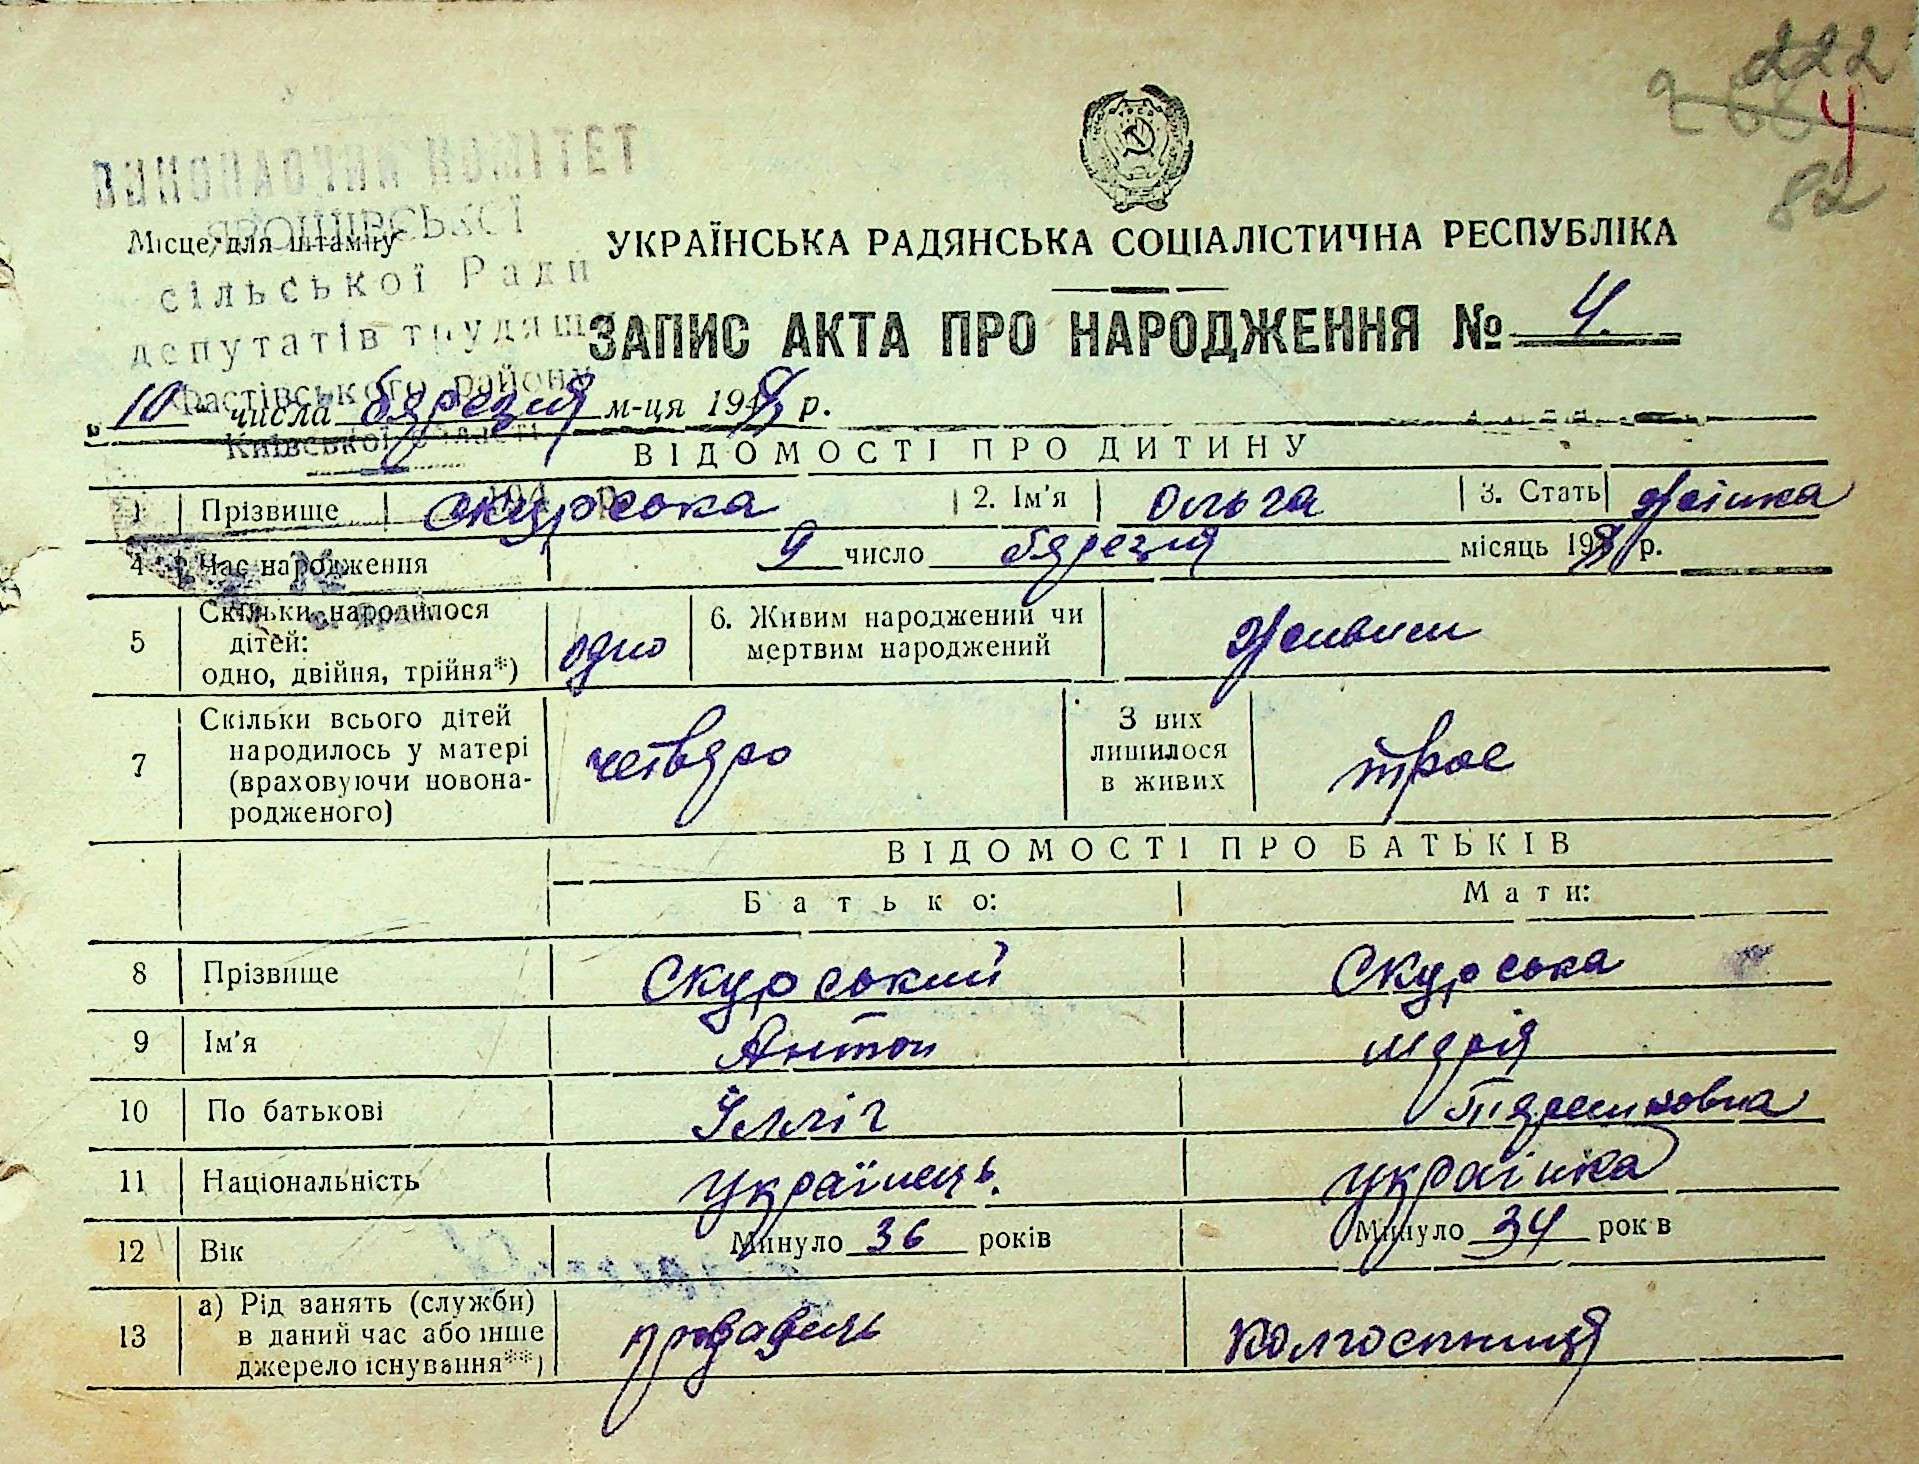 222
4
82
ВИКОНАВЧИЙ КОМІТЕТ
ЯРОШІВСЬКОЇ
Місце для штампу
сільської Ради
депутатів трудящ
Фастівського району
Київської області
УКРАЇНСЬКА РАДЯНСЬКА СОЦІАЛІСТИЧНА РЕСПУБЛІКА
ЗАПИС АКТА ПРО НАРОДЖЕННЯ № 4.
„ 10 " числа березня м-ця 194 р.
ВІДОМОСТІ ПРО ДИТИНУ
1 Прізвище Скурська 2. Ім'я Ольга 3. Стать жінка
4 Час народження 9 число березня місяць 19 р.
5 Скільки народилося дітей: одно, двійня, трійня*) одно 6. Живим народжений чи мертвим народжений живим
7 Скільки всього дітей народилось у матері (враховуючи новонародженого) четверо З них лишилося в живих троє
ВІДОМОСТІ ПРО БАТЬКІВ
Батько: Мати:
8 Прізвище Скурський Скурська
9 Ім'я Антон Марія
10 По батькові Ілліч
11 Національність українець. українка
12 Вік Минуло 36 років Минуло 34 рок в
13 а) Рід занять (служби) в даний час або інше джерело існування**) продавець колгоспниця